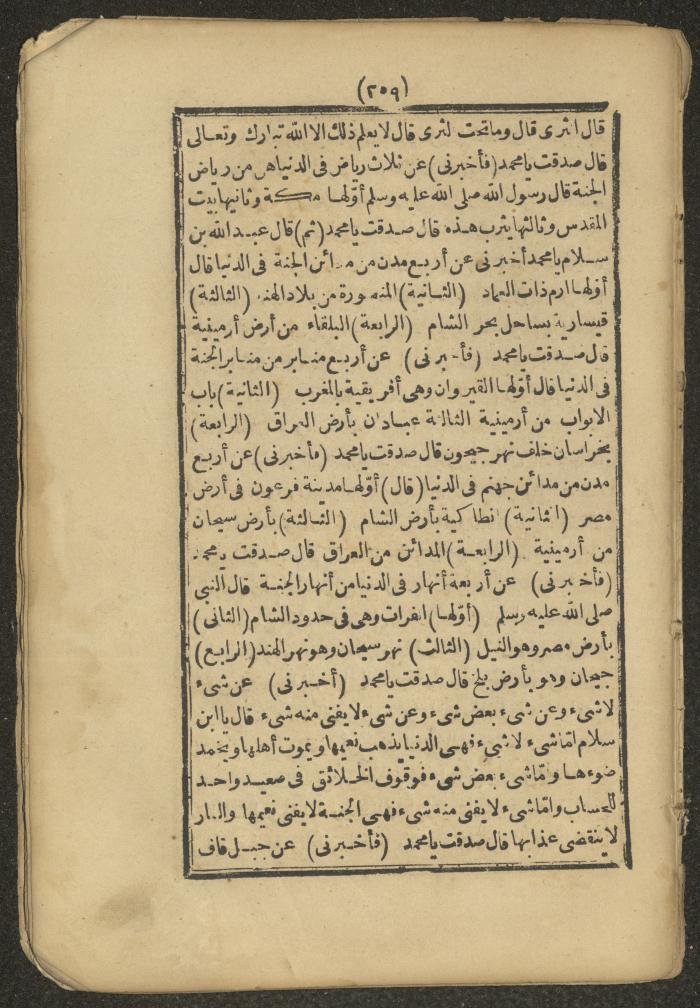 (٢٥٩)
قال الثرى قال وما تحت الثرى قال لا يعلم ذلك الا الله تبارك وتعالى
قال صدقت يا محمد (فأخبرنى) عن ثلاث رياض فى الدنيا هن من رياض
الجنة قال رسول الله صلى الله عليه وسلم أولها مكة وثانيها بيت
المقدس وثالثها يثرب هذه قال صدقت يا محمد (ثم) قال عبد الله بن
سلام يا محمد أخبرنى عن أربع مدن من مدائن الجنة فى الدنيا قال
أولها ارم ذات العماد (الثانية) المنصورة من بلاد الهند (الثالثة)
قيسارية بساحل بحر الشام (الرابعة) البلقاء من أرض أرمينية
قال صدقت يا محمد (فأخبرنى) عن أربع منابر من منابر الجنة
فى الدنيا قال أولها القيروان وهى أفريقية بالمغرب (الثانية) باب
الابواب من أرمينية الثالثة عبادان بأرض العراق (الرابعة)
بخراسان خلف نهر جيحون قال صدقت يا محمد (فأخبرنى) عن أربع
مدن من مدائن جهنم فى الدنيا (قال) أولها مدينة فرعون فى أرض
مصر (الثانية) انطاكية بأرض الشام (الثالثة) بأرض سيحان
من أرمينية (الرابعة) المدائن من العراق قال صدقت يا محمد
(فأخبرنى) عن أربعة أنهار فى الدنيا من أنهار الجنة قال النبى
صلى الله عليه وسلم (أولها) الفرات وهى فى حدود الشام (الثانى)
بأرض مصر وهو النيل (الثالث) نهر سيحان وهو نهر الهند (الرابع)
جيحان وهو بأرض بلخ قال صدقت يا محمد (أخبرنى) عن شىء
لا شىء وعن شىء بعض شىء وعن شىء لا يفنى منه شىء قال يا ابن
سلام اما شىء لا شىء فهى الدنيا يذهب نعيمها ويموت أهلها ويخمد
ضوءها واما شىء بعض شىء فوقوف الخلائق فى صعيد واحد
للحساب واما شىء لا يفنى منه شىء فهى الجنة لا يفنى نعيمها والنار
لا ينقضى عذابها قال صدقت يا محمد (فأخبرنى) عن جبل قاف